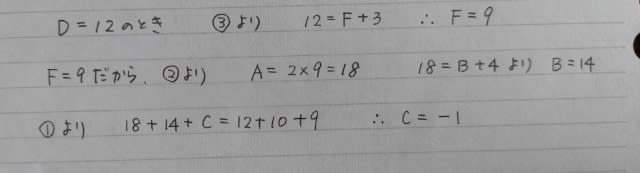 D = 12 のとき ③より 12 = F + 3 ∴ F = 9
F = 9 だから、②より A = 2 × 9 = 18 18 = B + 4 より B = 14
①より 18 + 14 + C = 12 + 10 + 9 ∴ C = -1